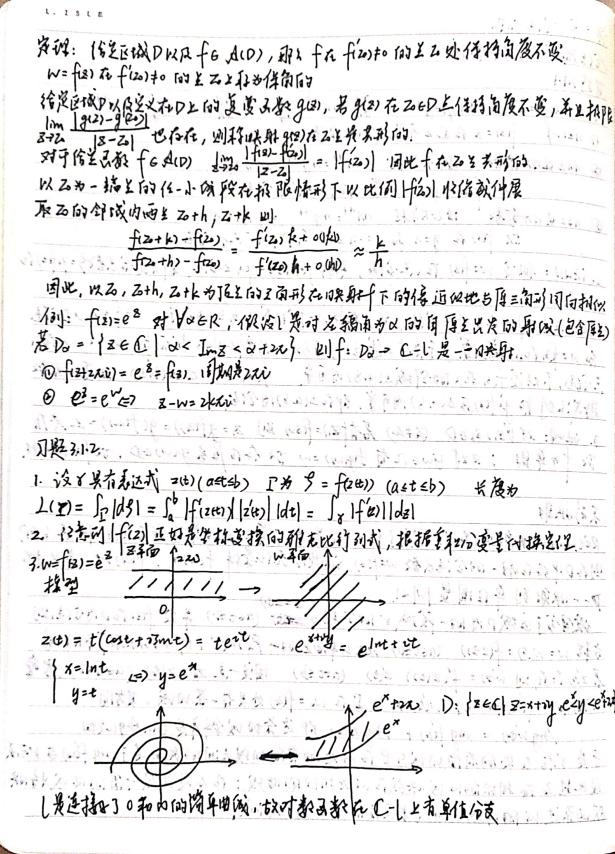 定理：给定区域D以及 f∈A(D)，那么 f 在 f'(z₀)≠0 的点 z₀ 处保持角度不变
w=f(z) 在 f'(z₀)≠0 的点 z₀ 上称为保角的
给定区域D以及定义在D上的复变函数 g(z)，若 g(z) 在 z₀∈D 点保持角度不变，并且极限
lim_{z→z₀} |g(z)-g(z₀)|/|z-z₀| 也存在，则称映射 g(z) 在 z₀ 点是共形的.
对于给定函数 f∈A(D) lim_{z→z₀} |f(z)-f(z₀)|/|z-z₀| = |f'(z₀)| 因此 f 在 z₀ 点共形的.
以 z₀ 为一端点的任一小线段在极限情形下以比例 |f'(z₀)| 收缩或伸展
取 z₀ 的邻域内两点 z₀+h, z₀+k 则
(f(z₀+k)-f(z₀))/(f(z₀+h)-f(z₀)) = (f'(z₀)k+o(|k|))/(f'(z₀)h+o(|h|)) ≈ k/h
因此，以 z₀, z₀+h, z₀+k 为顶点的三角形在映射 f 下的像近似地与原三角形同向相似
例：f(z)=e^z 对 ∀α∈R，假设 l 是对应辐角为 α 的自原点出发的射线 (包含原点)
若 Dα = {z∈ℂ | α< Im z < α+2π} 则 f: Dα → ℂ-l 是一一映射
① f(z+2πi) = e^z = f(z). 周期是2πi
② e^z=e^w ⇔ z-w=2kπi
习题3.1.2.
1. 设 γ 具有表达式 z(t) (a≤t≤b) Γ为 ζ=f(z(t)) (a≤t≤b) 长度为
L(Γ)=∫_Γ|dζ| = ∫_a^b |f'(z(t))||z'(t)||dt| = ∫_γ |f'(z)||dz|
2. 注意到 |f'(z)|² 正好是坐标变换的雅克比行列式，根据重积分变量代换定理
3. w=f(z)=e^z z平面 2πi w平面
0.
z(t) = t(cost+isint) = te^{it} e^{x+iy} = e^{lnt+it}
{ x=lnt y=t ⇔ y=e^x
e^x+2π e^x D: {z∈ℂ| z=x+iy, e^x<y<e^x+2π}
l 是连接了 0 和 ∞ 的简单曲线，故对数函数在 ℂ-l 上有单值分支